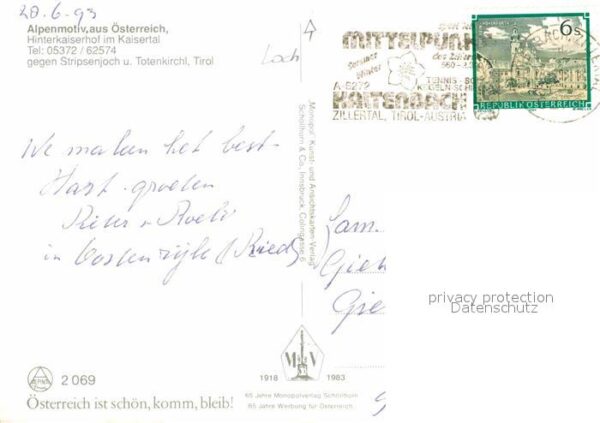 20.6.93
Alpenmotiv, aus Österreich,
Hinterkaiserhof im Kaisertal
Tel: 05372 / 62574
gegen Stripsenjoch u. Totenkirchl, Tirol
MITTELPUNK
Sommer
Winter
des Zillertal
A-6272
TENNIS-SC
KEGELN-SCHIE
KALTENBACH
ZILLERTAL, TIROL-AUSTRIA
6s
REPUBLIK ÖSTERREICH
We maken het best
Hart. groeten
in Oostenrijk (Ried)
Monopol Kunst- und Ansichtskarten-Verlag
Schöllhorn & Co, Innsbruck, Colingasse 6
Fam.
privacy protection
Datenschutz
2 069
M V
1918 1983
Österreich ist schön, komm, bleib!
65 Jahre Monopolverlag Schöllhorn.
65 Jahre Werbung für Österreich.